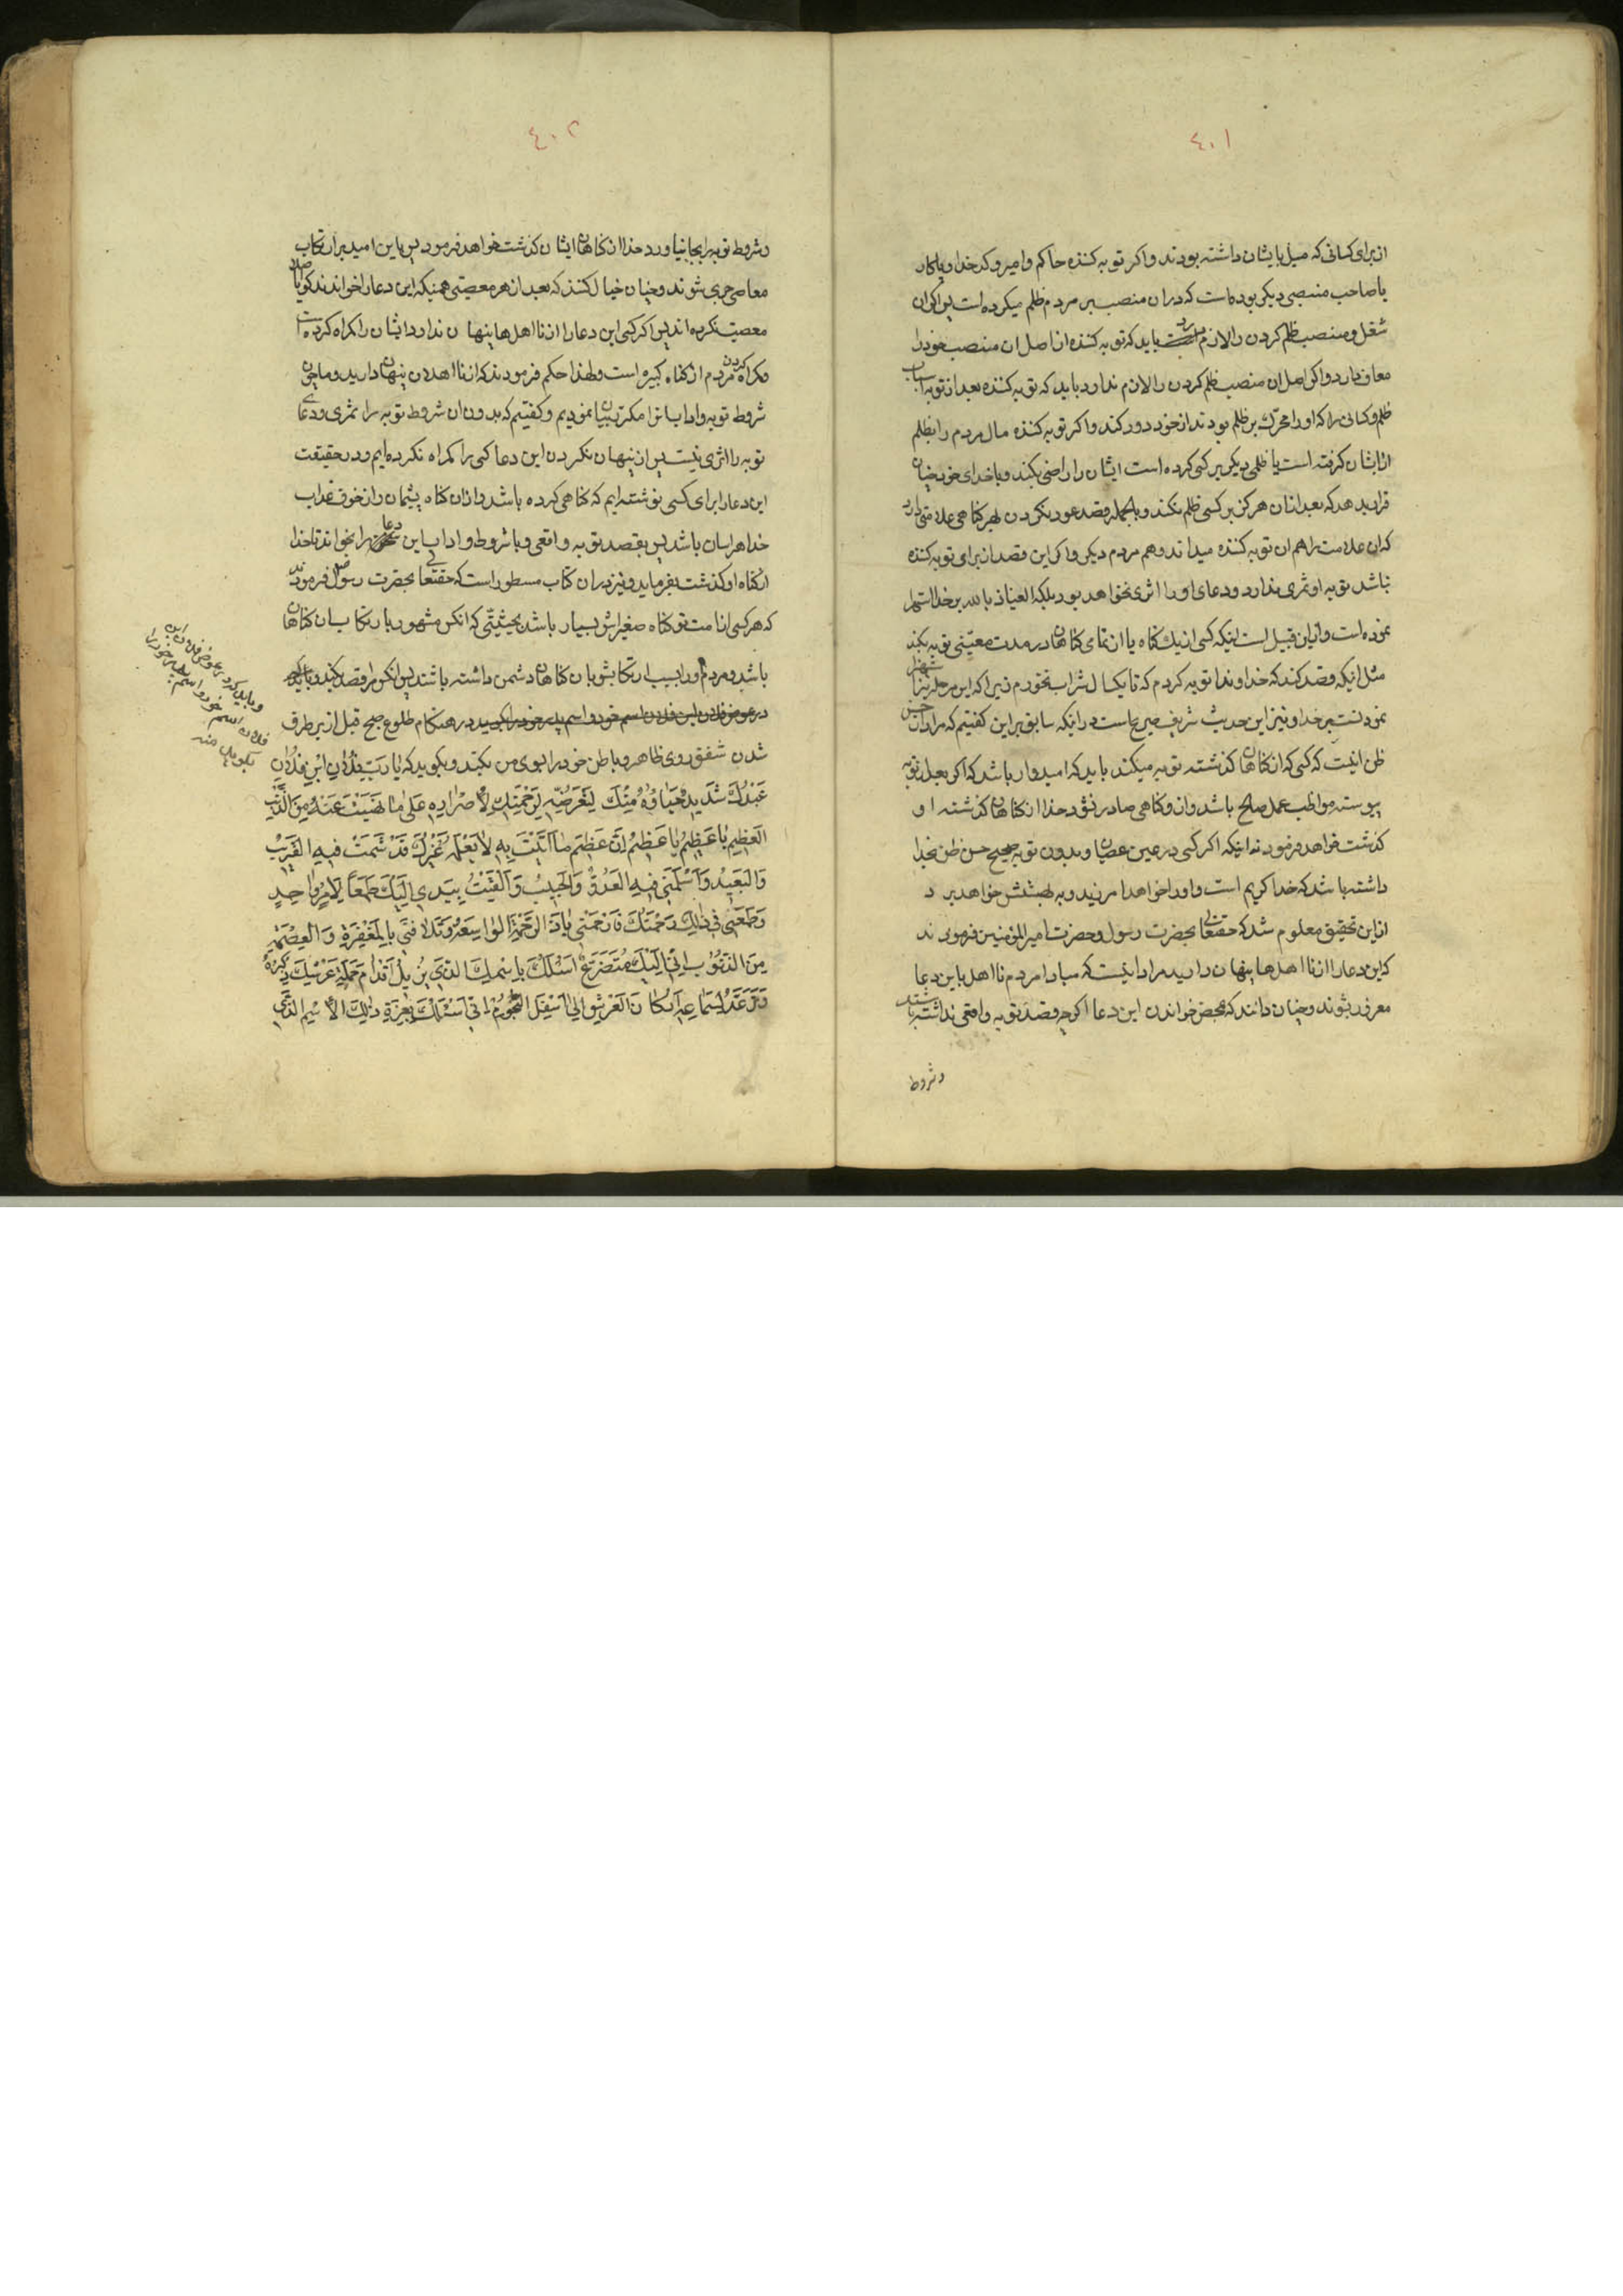 ٤٠١
از برای کسانی که میل بایشان داشته بودند و اکر توبه کننده حاکم و امیر و کدخدا و یا کار
یا صاحب منصبی دیکر بوده است که در ان منصب بر مردم ظلم میکرده است پس اکر ان
شغل و منصب ظلم کردن را لازم دارد باید که توبه کننده از اصل ان منصب خود را
معاف دارد و اکر اصل ان منصب ظلم کردن را لازم ندارد باید که توبه کننده بعد از توبه اسباب
ظلم و کسانی را که او را محرّک بر ظلم بودند از خود دور کند و اکر توبه کننده مال مردم را بظلم
از ایشان کرفته است یا ظلمی دیکر بر کسی کرده است ایشان را راضی بکند و با خدای خود چنان
قرار بدهد که بعد از ان هرکز بر کسی ظلم نکند و بالجمله قصد عود نکردن بهر کناهی علامتی دارد
که ان علامت را هم ان توبه کننده میداند و هم مردم دیکر و اکر این قصد از برای توبه کننده
نباشد توبه او ثمری ندارد و دعای او را اثری نخواهد بود بلکه العیاذ بالله بر خدا استهزا
نموده است و از این قبیل است اینکه کسی از یک کناه یا از تمامی کناهان در مدت معیّنی توبه بکند
مثل انیکه قصد کند که خداوندا توبه کردم که تا یکسال شراب نخورم زیرا که این مرحله نیز استهزا
نمودنست بر خدا و نیز این حدیث شریف صریح است در انیکه سابق بر این کفتیم که مراد از حسن
ظن اینست که کسی که از کناهان کذشته توبه میکند باید که امیدوار باشد که اکر بعد از توبه
پیوسته مواظب عمل صالح باشد و از و کناهی صادر نشود خدا از کناهان کذشته او
کذشت خواهد فرمود نه اینکه اکر کسی در عین عصیان و بدون توبه صحیح حسن ظن بخدا
داشته باشد که خدا کریم است و او را خواهد امرزید و به بهشتش خواهد برد
از این تحقیق معلوم شد که حقتعالی بحضرت رسول و حضرت امیر المؤمنین فرمودند
که این دعا را از نا اهلها پنهان دارید مراد اینست که مبادا مردم نا اهل باین دعا
مغرور بشوند و چنان دانند که بمحض خواندن این دعا اکرچه قصد توبه واقعی نداشته باشند
و شروط
٤٠٢
و شروط توبه را بجا نیاورد خدا از کناهان ایشان کذشت خواهد فرمود پس باین امید بر ارتکاب
معاصی جری شوند و چنان خیال کنند که بعد از هر معصیتی همینکه این دعا را خواندند کویا اصلا
معصیت نکرده اند پس اکر کسی این دعا را از نا اهلها پنهان ندارد ایشان را کمراه کرده است
و کمراه کردن مردم از کناه کبیره است و لهذا حکم فرمودند که از نا اهلان پنهان دارید و ما چون
شروط توبه و اداب انرا مکرّر بیان نمودیم و کفتیم که بدون ان شروط توبه را ثمری و دعای
توبه را اثری نیست پس از پنهان نکردن این دعا کسی را کمراه نکرده ایم و در حقیقت
این دعا را برای کسی نوشته ایم که کناهی کرده باشد و از ان کناه پشیمان و از خوف عذاب
خدا هراسان باشد پس بقصد توبه واقعی و با شروط و اداب این دعا را بخواند تا خدا
از کناه او کذشت بفرماید و نیز در ان کتاب مسطور است که حقتعالی بحضرت رسول ص فرمودند
که هر کسی از امت تو کناه صغیراش بسیار باشد بحیثیّتی که انکس مشهور بارتکاب ان کناهان
باشد و مردم او را بسبب ارتکابش بان کناهان دشمن داشته باشند پس انکس مرا قصد بکند
در عوض فلان ابن فلان اسم خود و اسم پدر خود را بکوید در هنکام طلوع صبح قبل از بر طرف
شدن شفق روی ظاهر و باطن خود را بسوی من بکند و بکوید که یٰا رَبِّ فُلٰانِ ابْنِ فُلٰانٍ
عَبْدُكَ شَدِیدٌ حَیٰاؤُهُ مِنْكَ لِتَعَرُّضِهِ لِرَحْمَتِكَ لِاِصْرٰارِهِ عَلیٰ مٰا نَهَیْتَ عَنْهُ مِنَ الذَّنْبِ
الْعَظِیمِ یٰا عَظِیمُ یٰا عَظِیمُ اِنَّ عَظِیمَ مٰا اَتَیْتُ بِهِ لٰا یَعْلَمُهُ غَیْرُكَ قَدْ شَمِتَ فِیهِ الْقَرِیبُ
وَ الْبَعِیدُ وَ اَسْلَمَنِی فِیهِ الْعَدُوُّ وَ الْحَبِیبُ وَ اَلْقَیْتُ بِیَدِی اِلَیْكَ طَمَعًا لِاَمْرٍ وٰاحِدٍ
وَ طَمَعِی فِی ذٰلِكَ رَحْمَتُكَ فَارْحَمْنِی یٰا ذَا الرَّحْمَةِ الْوٰاسِعَةِ وَ تَلٰافَنِی بِالْمَغْفِرَةِ وَ الْعِصْمَةِ
مِنَ الذُّنُوبِ اِنِّی اِلَیْكَ مُتَضَرِّعٌ اَسْئَلُكَ بِاسْمِكَ الَّذِی یُزِیلُ اَقْدٰامَ حَمَلَةِ عَرْشِكَ ذِكْرُهُ
وَ تَرْعَدُ لِسَمٰاعِهِ اَرْكٰانُ الْعَرْشِ اِلیٰ اَسْفَلِ التُّخُومِ اِنِّی اَسْئَلُكَ بِعِزَّةِ ذٰلِكَ الْاِسْمِ الَّذِی
و باید که در عوض فلان ابن
فلان اسم خود و اسم پدر خود را
بکوید منه